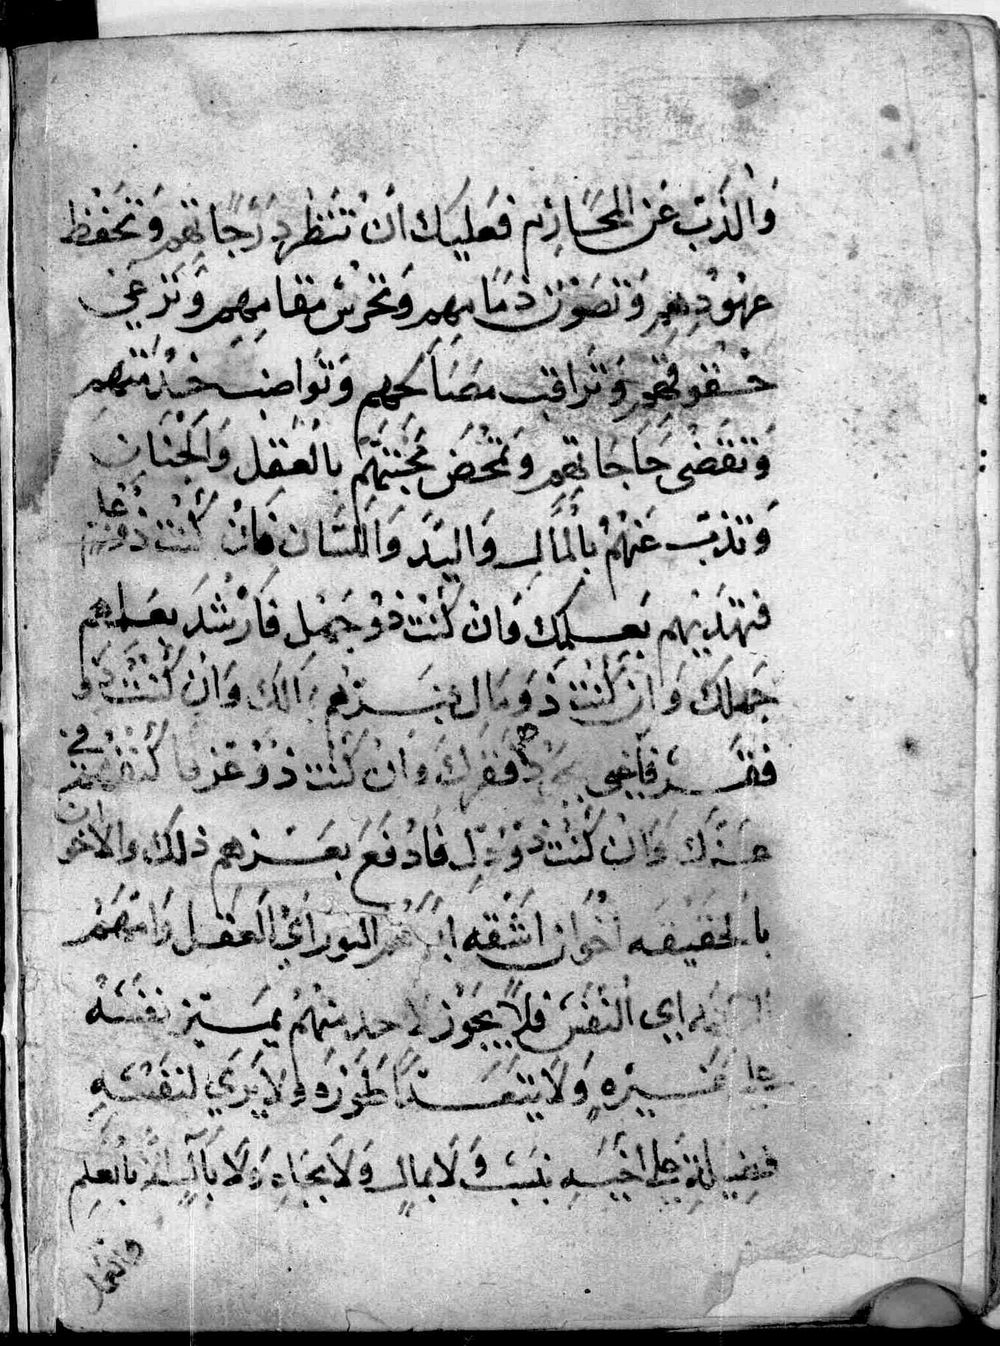 وَالذَّبّ عَن المحَارِم فعَليك انْ تنظر دَرَجَاتهم وَتحفظ
عهودهم وَتصون ذمامهم وتحرس مقامهم وَترعي
حقوقهم وَتراقب مصَالحهم وَتواضب خدمتهم
وَتقضى حَاجَاتهم وَتمحض محبتهم بالعقل وَالجنَان
وَتذبّ عَنهُمْ بالمَال وَاليَد وَاللسَان فَانْ كُنْت ذُو علم
فتهديهم بعَلمك وَان كُنْت ذو جهل فَارْشدَ بعَلمهم
جهلك وَان كُنْت ذو مَال مالك وَان كُنْت ذو
فقر فاغني فقرك وَانْ كُنْت ذُوْ عز في
عزك وَانْ كُنْت ذُوْ ذل فَادْفعَ بعَزهم ذلك والاخوان
بالحقيقه اخْوَان اشقه ابوهم النور اي العَقل وَامهم
اي النفس فلا يجوز لاحد منهُمْ يميز نفسَه
على غيره وَلا يتعَدا طوره ولا يري لنفسه
فضيلة على اخيه بنسب وَلا بمال وَلا بجاه وَلا بالعلم
والعمل